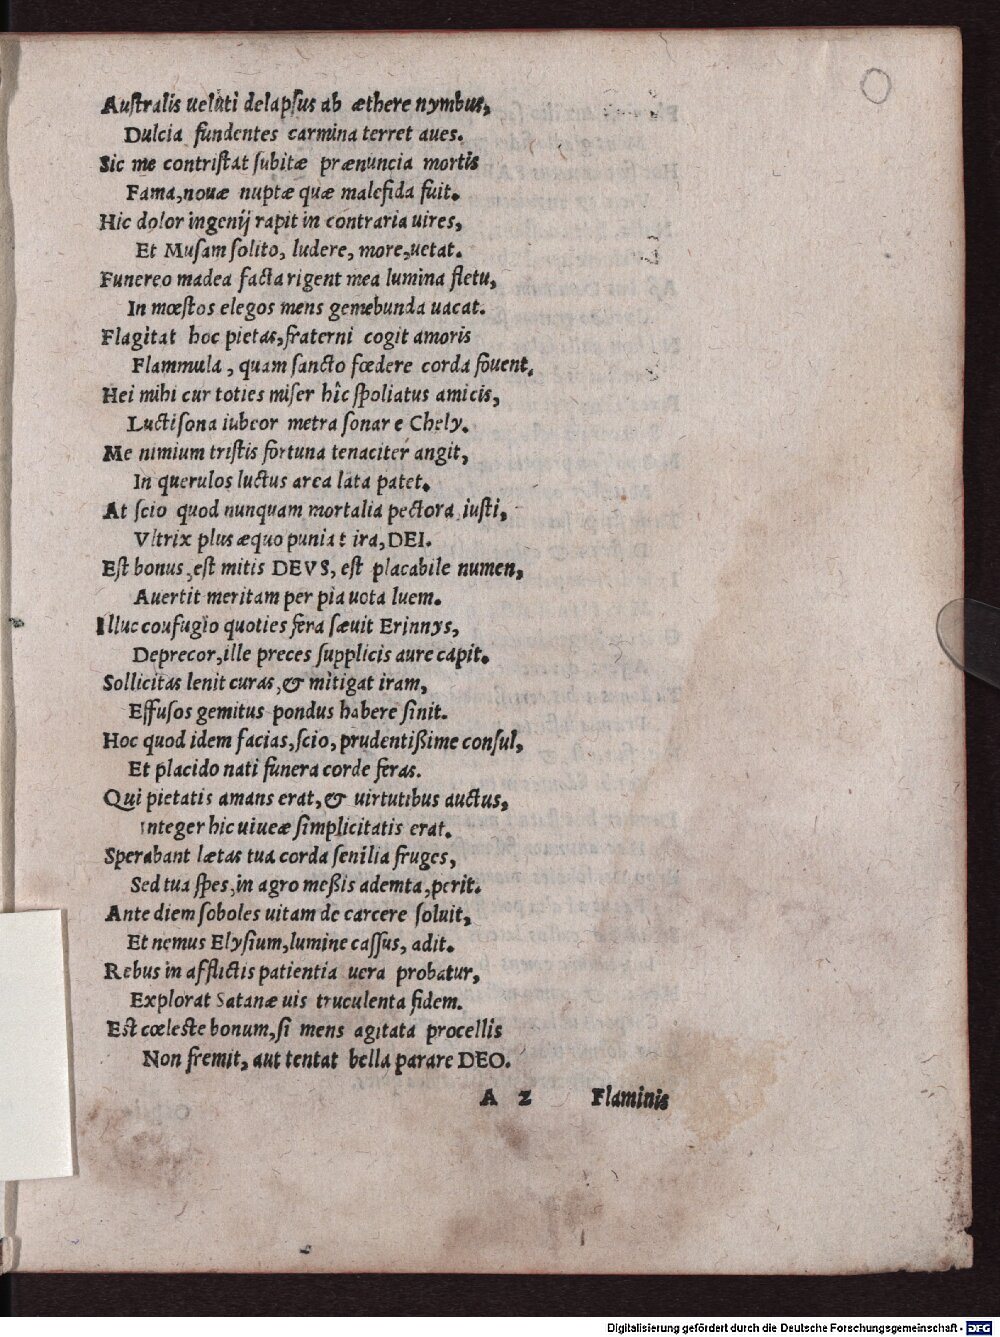 Australis ueluti delapsus ab æthere nymbus,
Dulcia fundentes carmina terret aues.
Sic me contristat subitæ prænuncia mortis
Fama, nouæ nuptæ quæ malefida fuit.
Hic dolor ingenij rapit in contraria uires,
Et Musam solito, ludere, more, uetat.
Funereo madea facta rigent mea lumina fletu,
In mœstos elegos mens gemebunda uacat.
Flagitat hoc pietas, fraterni cogit amoris
Flammula, quam sancto fœdere corda fouent.
Hei mihi cur toties miser hîc spoliatus amicis,
Luctisona iubeor metra sonar e Chely.
Me nimium tristis fortuna tenaciter angit,
In querulos luctus area lata patet.
At scio quod nunquam mortalia pectora iusti,
Vltrix plus æquo puniat ira, DEI.
Est bonus, est mitis DEVS, est placabile numen,
Auertit meritam per pia uota luem.
Illuc coufugio quoties fera sæuit Erinnys,
Deprecor, ille preces supplicis aure capit.
Sollicitas lenit curas, & mitigat iram,
Effusos gemitus pondus habere sinit.
Hoc quod idem facias, scio, prudentißime consul,
Et placido nati funera corde feras.
Qui pietatis amans erat, & uirtutibus auctus,
Integer hic uiueæ simplicitatis erat.
Sperabant lætas tua corda senilia fruges,
Sed tua spes, in agro meßis ademta, perit.
Ante diem soboles uitam de carcere soluit,
Et nemus Elysium, lumine cassus, adit.
Rebus in afflictis patientia uera probatur,
Explorat Satanæ uis truculenta fidem.
Est cœleste bonum, si mens agitata procellis
Non fremit, aut tentat bella parare DEO.
A 2 Flaminis
Digitalisierung gefördert durch die Deutsche Forschungsgemeinschaft - DFG